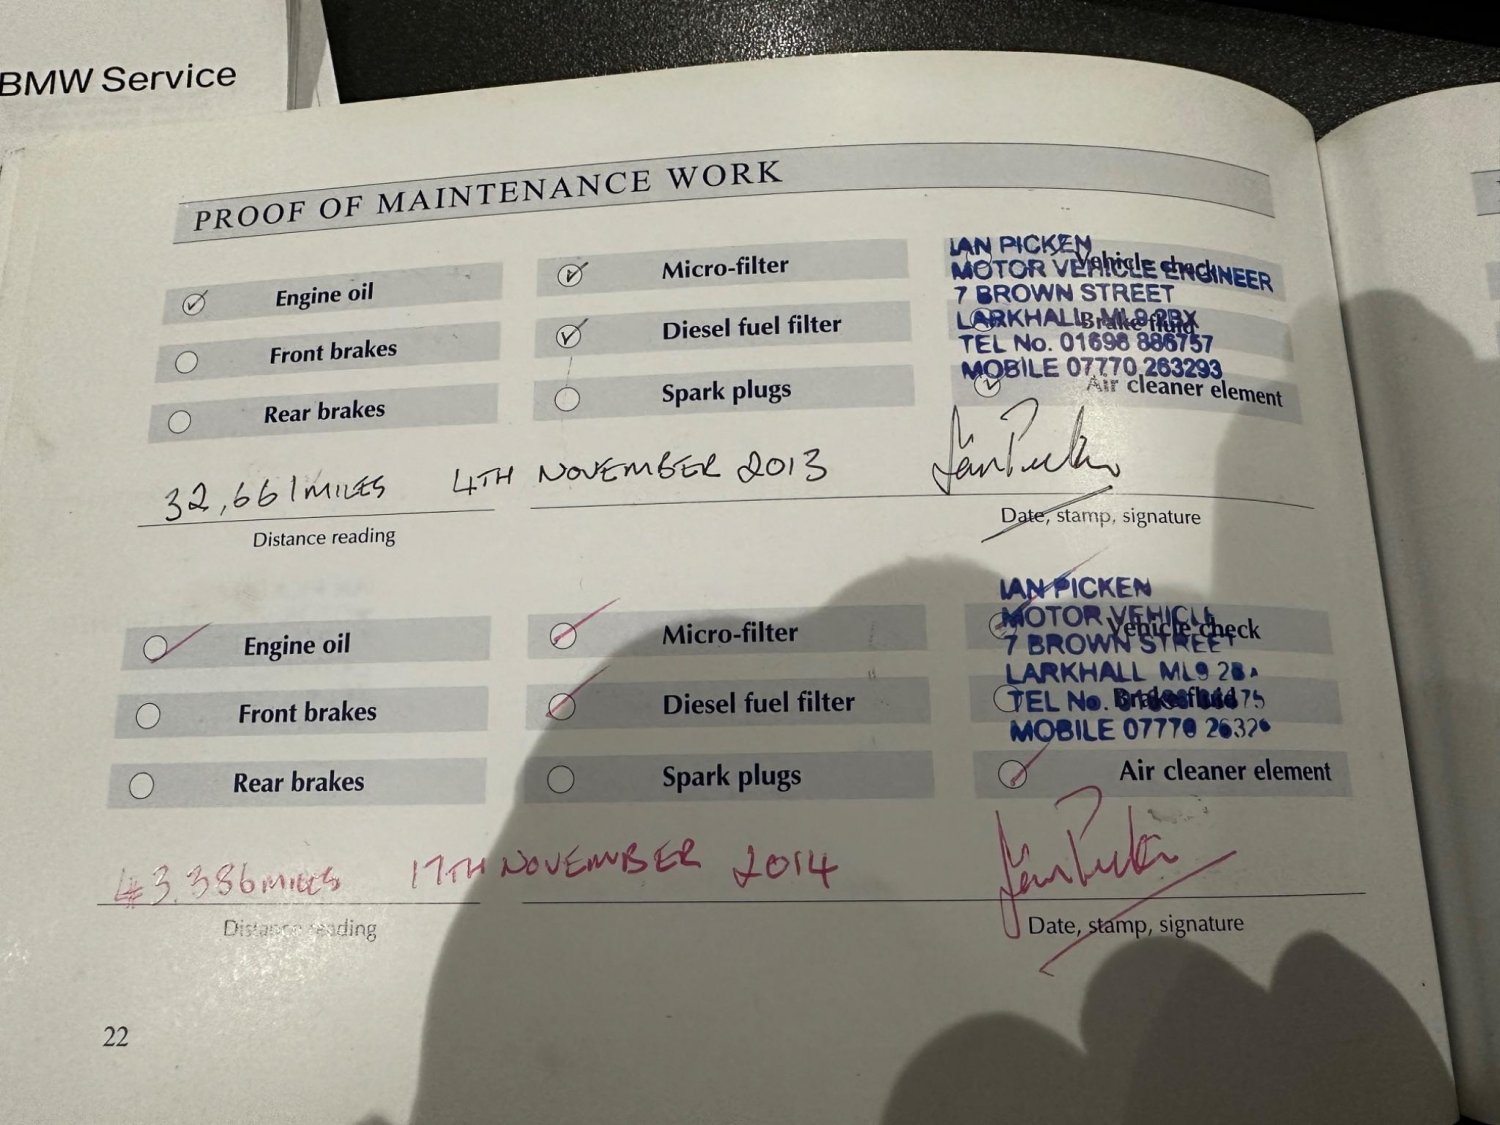 BMW Service
PROOF OF MAINTENANCE WORK
Engine oil
Micro-filter
Vehicle check
Front brakes
Diesel fuel filter
Brake fluid
Rear brakes
Spark plugs
Air cleaner element
IAN PICKEN
MOTOR VEHICLE ENGINEER
7 BROWN STREET
LARKHALL ML9 2BX
TEL No. 01698 886757
MOBILE 07770 263293
32,661 MILES 4TH NOVEMBER 2013
Ian Picken
Distance reading
Date, stamp, signature
Engine oil
Micro-filter
Vehicle check
Front brakes
Diesel fuel filter
Brake fluid
Rear brakes
Spark plugs
Air cleaner element
IAN PICKEN
MOTOR VEHICLE
7 BROWN STREET
LARKHALL ML9
TEL No.
MOBILE 07770
43,386 MILES 17TH NOVEMBER 2014
Ian Picken
Distance reading
Date, stamp, signature
22